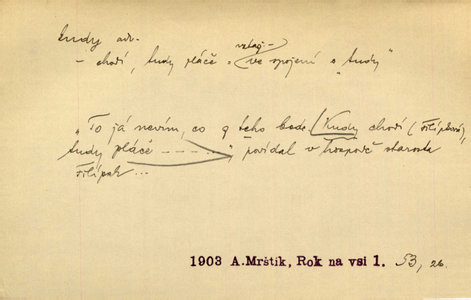 kudy adv.
vztaž.
- chodí, tudy pláče = ve spojení s „tudy“
„To já nevím, co z teho bode. Kudy chodí (Filípková),
tudy pláče - - - ...“, povídal v hospodě starosta
Filípek ...
1903 A.Mrštík, Rok na vsi 1. 53, 26.